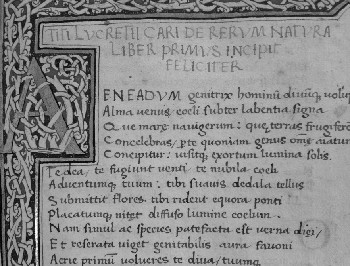 TITI LUCRETII CARI DE RERUM NATURA
LIBER PRIMUS INCIPIT
FELICITER
AENEADUM genitrix hominū divūq; volup
Alma venus coeli subter labentia signa
Que mare navigerum: que terras frugiferē
Concelebras, p te quoniam genus omē aiatum
Concipitur: visitq; exortum lumina solis.
Te dea, te fugiunt venti te nubila coeli
Adventumq; tuum: tibi suavis dedala tellus
Submittit flores tibi rident equora ponti
Placatumq; nitet diffuso lumine coelum.
Nam simul ac species patefacta est verna diei,
Et reserata viget genitabilis aura favoni
Aerie primū volucres te diva, tuumq;